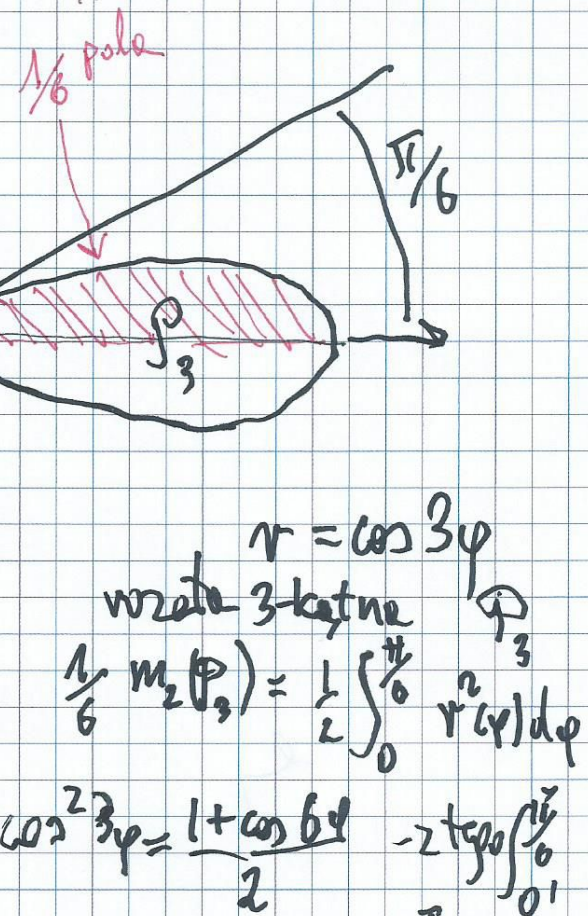 1/6 pola
π/6
P_3
r = cos 3φ
rozeta 3-kątna P_3
1/6 m_2(P_3) = 1/2 ∫_0^{π/6} r^2(φ) dφ
cos^2 3φ = (1 + cos 6φ)/2 - z tego ∫_0^{π/6}